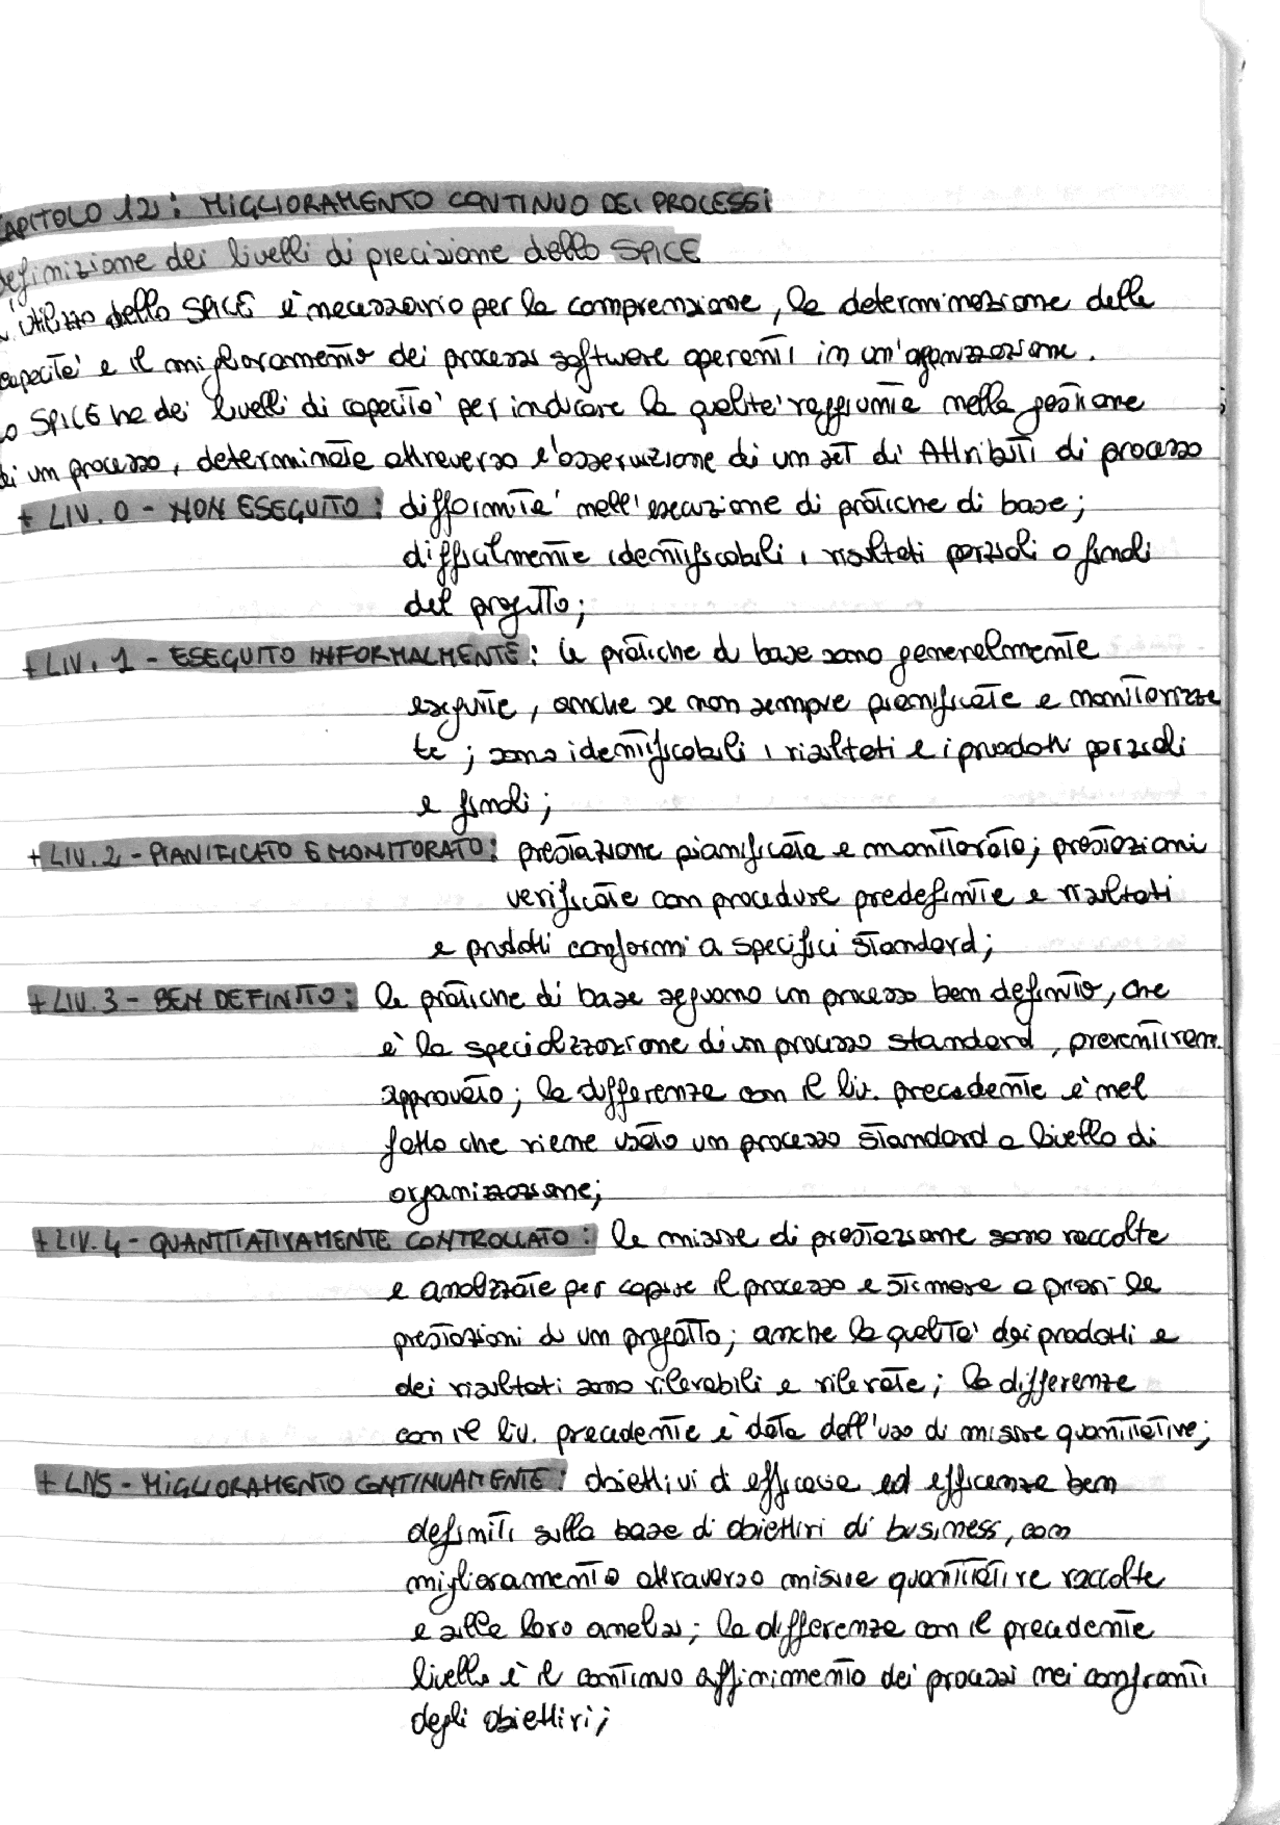 CAPITOLO 12: MIGLIORAMENTO CONTINUO DEI PROCESSI
Definizione dei livelli di precisione dello SPICE
L'utilizzo dello SPICE è necessario per la comprensione, la determinazione delle
capacità e il miglioramento dei processi software operanti in un'organizzazione.
Lo SPICE ha dei livelli di capacità per indicare la qualità raggiunta nella gestione
di un processo, determinate attraverso l'osservazione di un set di Attributi di processo
+ LIV. 0 - NON ESEGUITO: difformità nell'esecuzione di pratiche di base;
difficilmente identificabili i risultati parziali o finali
del progetto;
+ LIV. 1 - ESEGUITO INFORMALMENTE: le pratiche di base sono generalmente
eseguite, anche se non sempre pianificate e monitorizza
te; sono identificabili i risultati e i prodotti parziali
e finali;
+ LIV. 2 - PIANIFICATO E MONITORATO: prestazione pianificata e monitorata; prestazioni
verificate con procedure predefinite e risultati
e prodotti conformi a specifici standard;
+ LIV. 3 - BEN DEFINITO: le pratiche di base seguono un processo ben definito, che
è la specializzazione di un processo standard, preventivam.
approvato; la differenza con il liv. precedente è nel
fatto che viene usato un processo standard a livello di
organizzazione;
+ LIV. 4 - QUANTITATIVAMENTE CONTROLLATO: le misure di prestazione sono raccolte
e analizzate per capire il processo e stimare a priori le
prestazioni di un progetto; anche la qualità dei prodotti e
dei risultati sono rilevabili e rilevate; la differenza
con il liv. precedente è data dall'uso di misure quantitative;
+ LIV5 - MIGLIORAMENTO CONTINUAMENTE: obiettivi di efficacia ed efficenza ben
definiti sulla base di obiettivi di business, con
miglioramento attraverso misure quantitative raccolte
e alla loro analisi; la differenza con il precedente
livello è il continuo affinimento dei processi nei confronti
degli obiettivi;